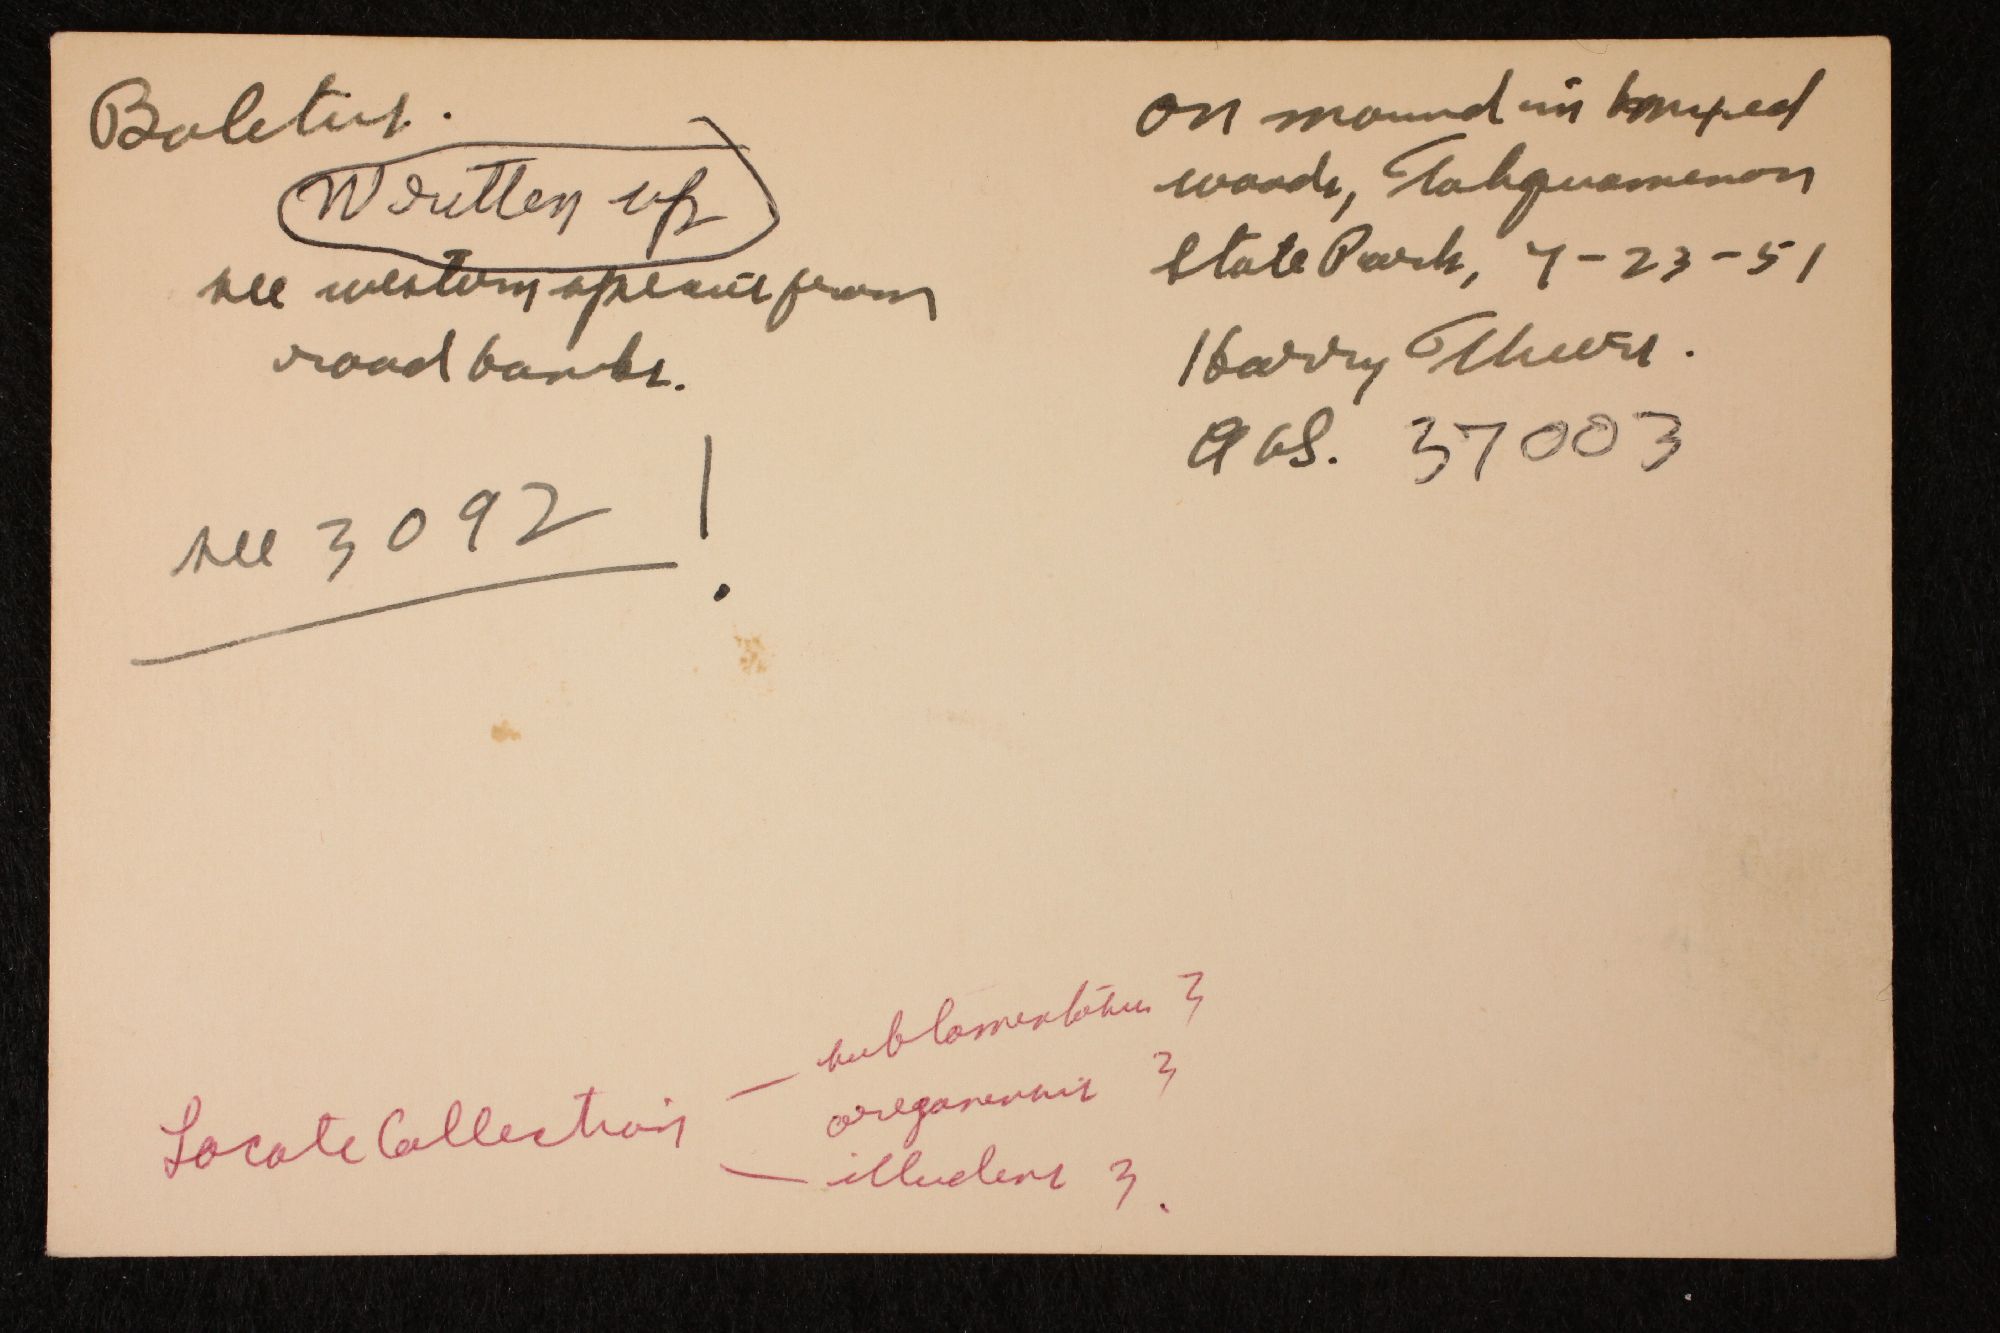 Boletus.
Written up
see western species from
road banks.
see 3092 !
on mound in mixed
woods, Tahquamenon
State Park, 7-23-51
Harry Thiers.
AHS. 37003
Locate Collection
— subtomentosus ?
oregonensis ?
— illudens ?